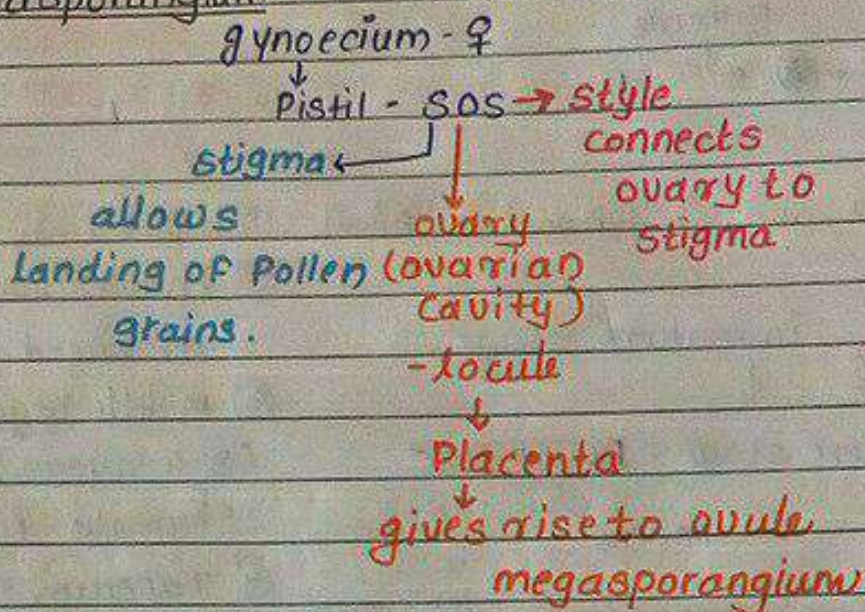 gynoecium - ♀
↓
Pistil - SOS → style
connects
ovary to
stigma
stigma ←
allows
landing of Pollen
grains.
ovary
(ovarian
cavity)
- locule
↓
Placenta
↓
gives rise to ovule
megasporangium